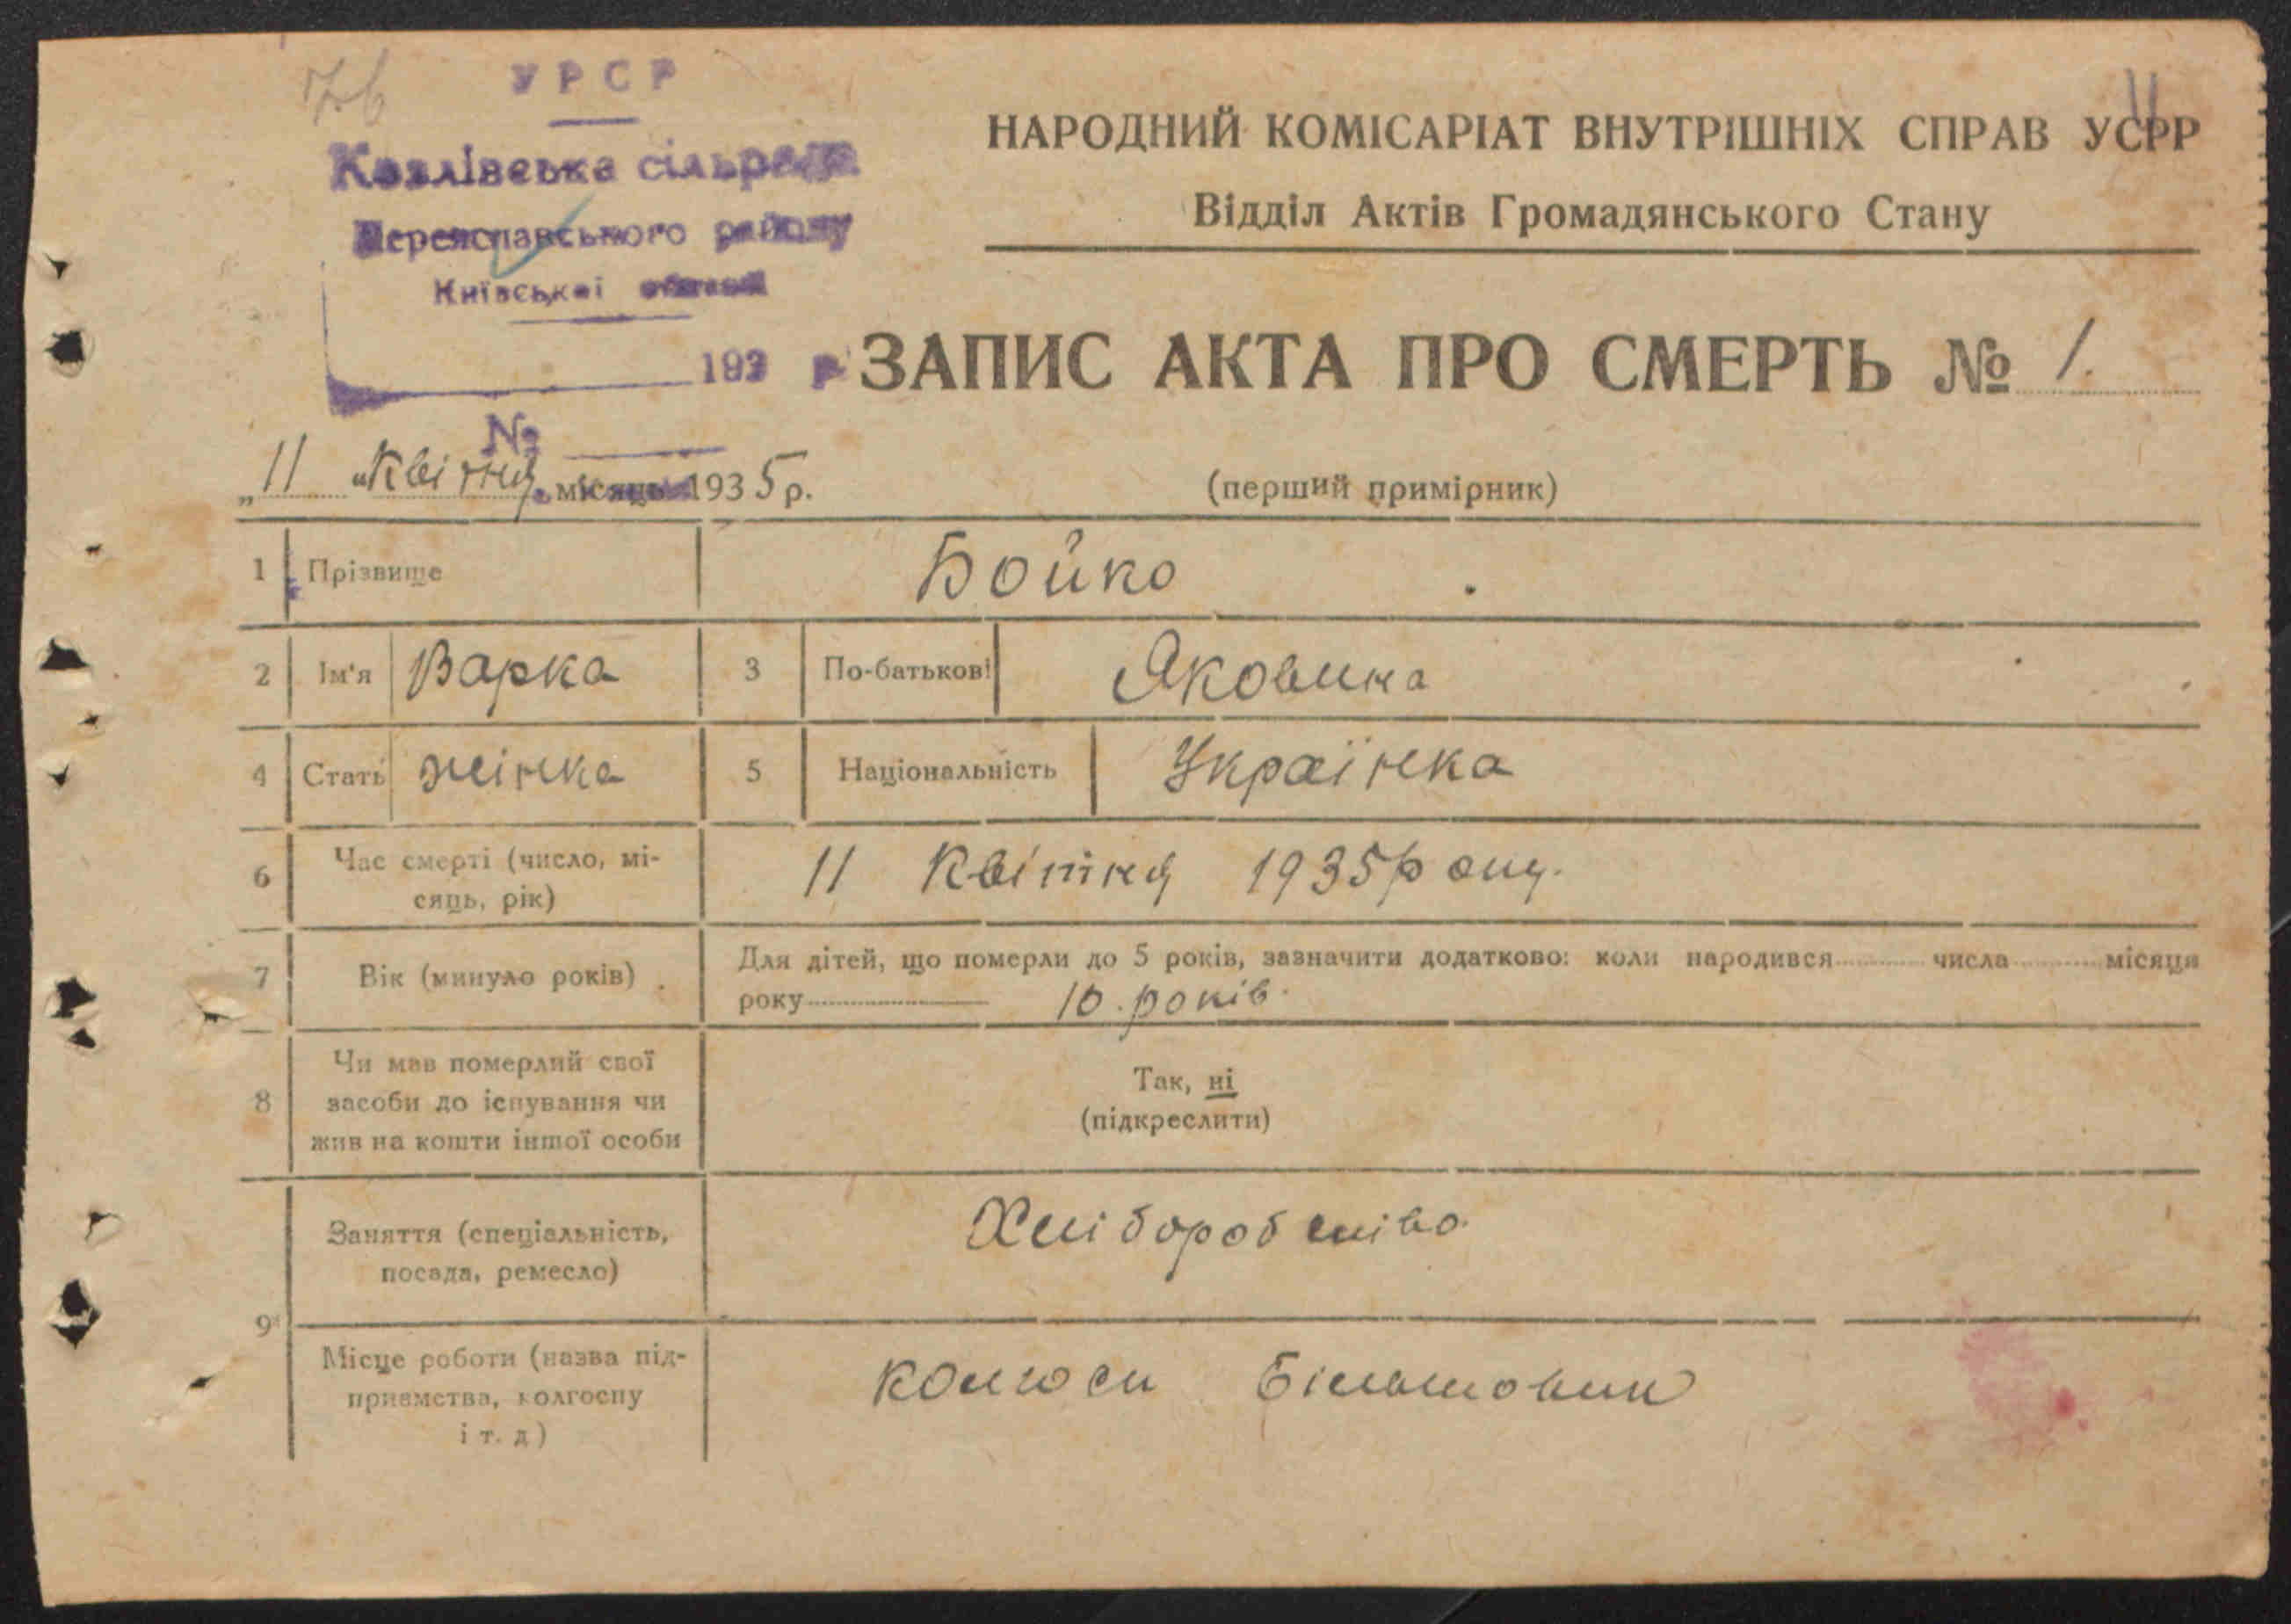 76
УРСР
Козлівська сільрада
Переяславського району
Київської області
193 р
№
11
НАРОДНИЙ КОМІСАРІАТ ВНУТРІШНІХ СПРАВ УСРР
Відділ Актів Громадянського Стану
ЗАПИС АКТА ПРО СМЕРТЬ № 1.
„11 "Квітня місяць 1935 р.
(перший примірник)
1 Прізвище Бойко
2 Ім'я Варка 3 По-батькові Яковина
4 Стать жінка 5 Національність Українка
6 Час смерті (число, мі-
сяць, рік) 11 Квітня 1935 року.
7 Вік (минуло років) Для дітей, що померли до 5 років, зазначити додатково: коли народився числа місяця
року 10. років.
8 Чи мав померлий свої
засоби до існування чи
жив на кошти іншої особи
Так, ні
(підкреслити)
9 Заняття (спеціальність,
посада, ремесло) Хліборобство
Місце роботи (назва під-
приємства, колгоспу
і т. д) Більшовик